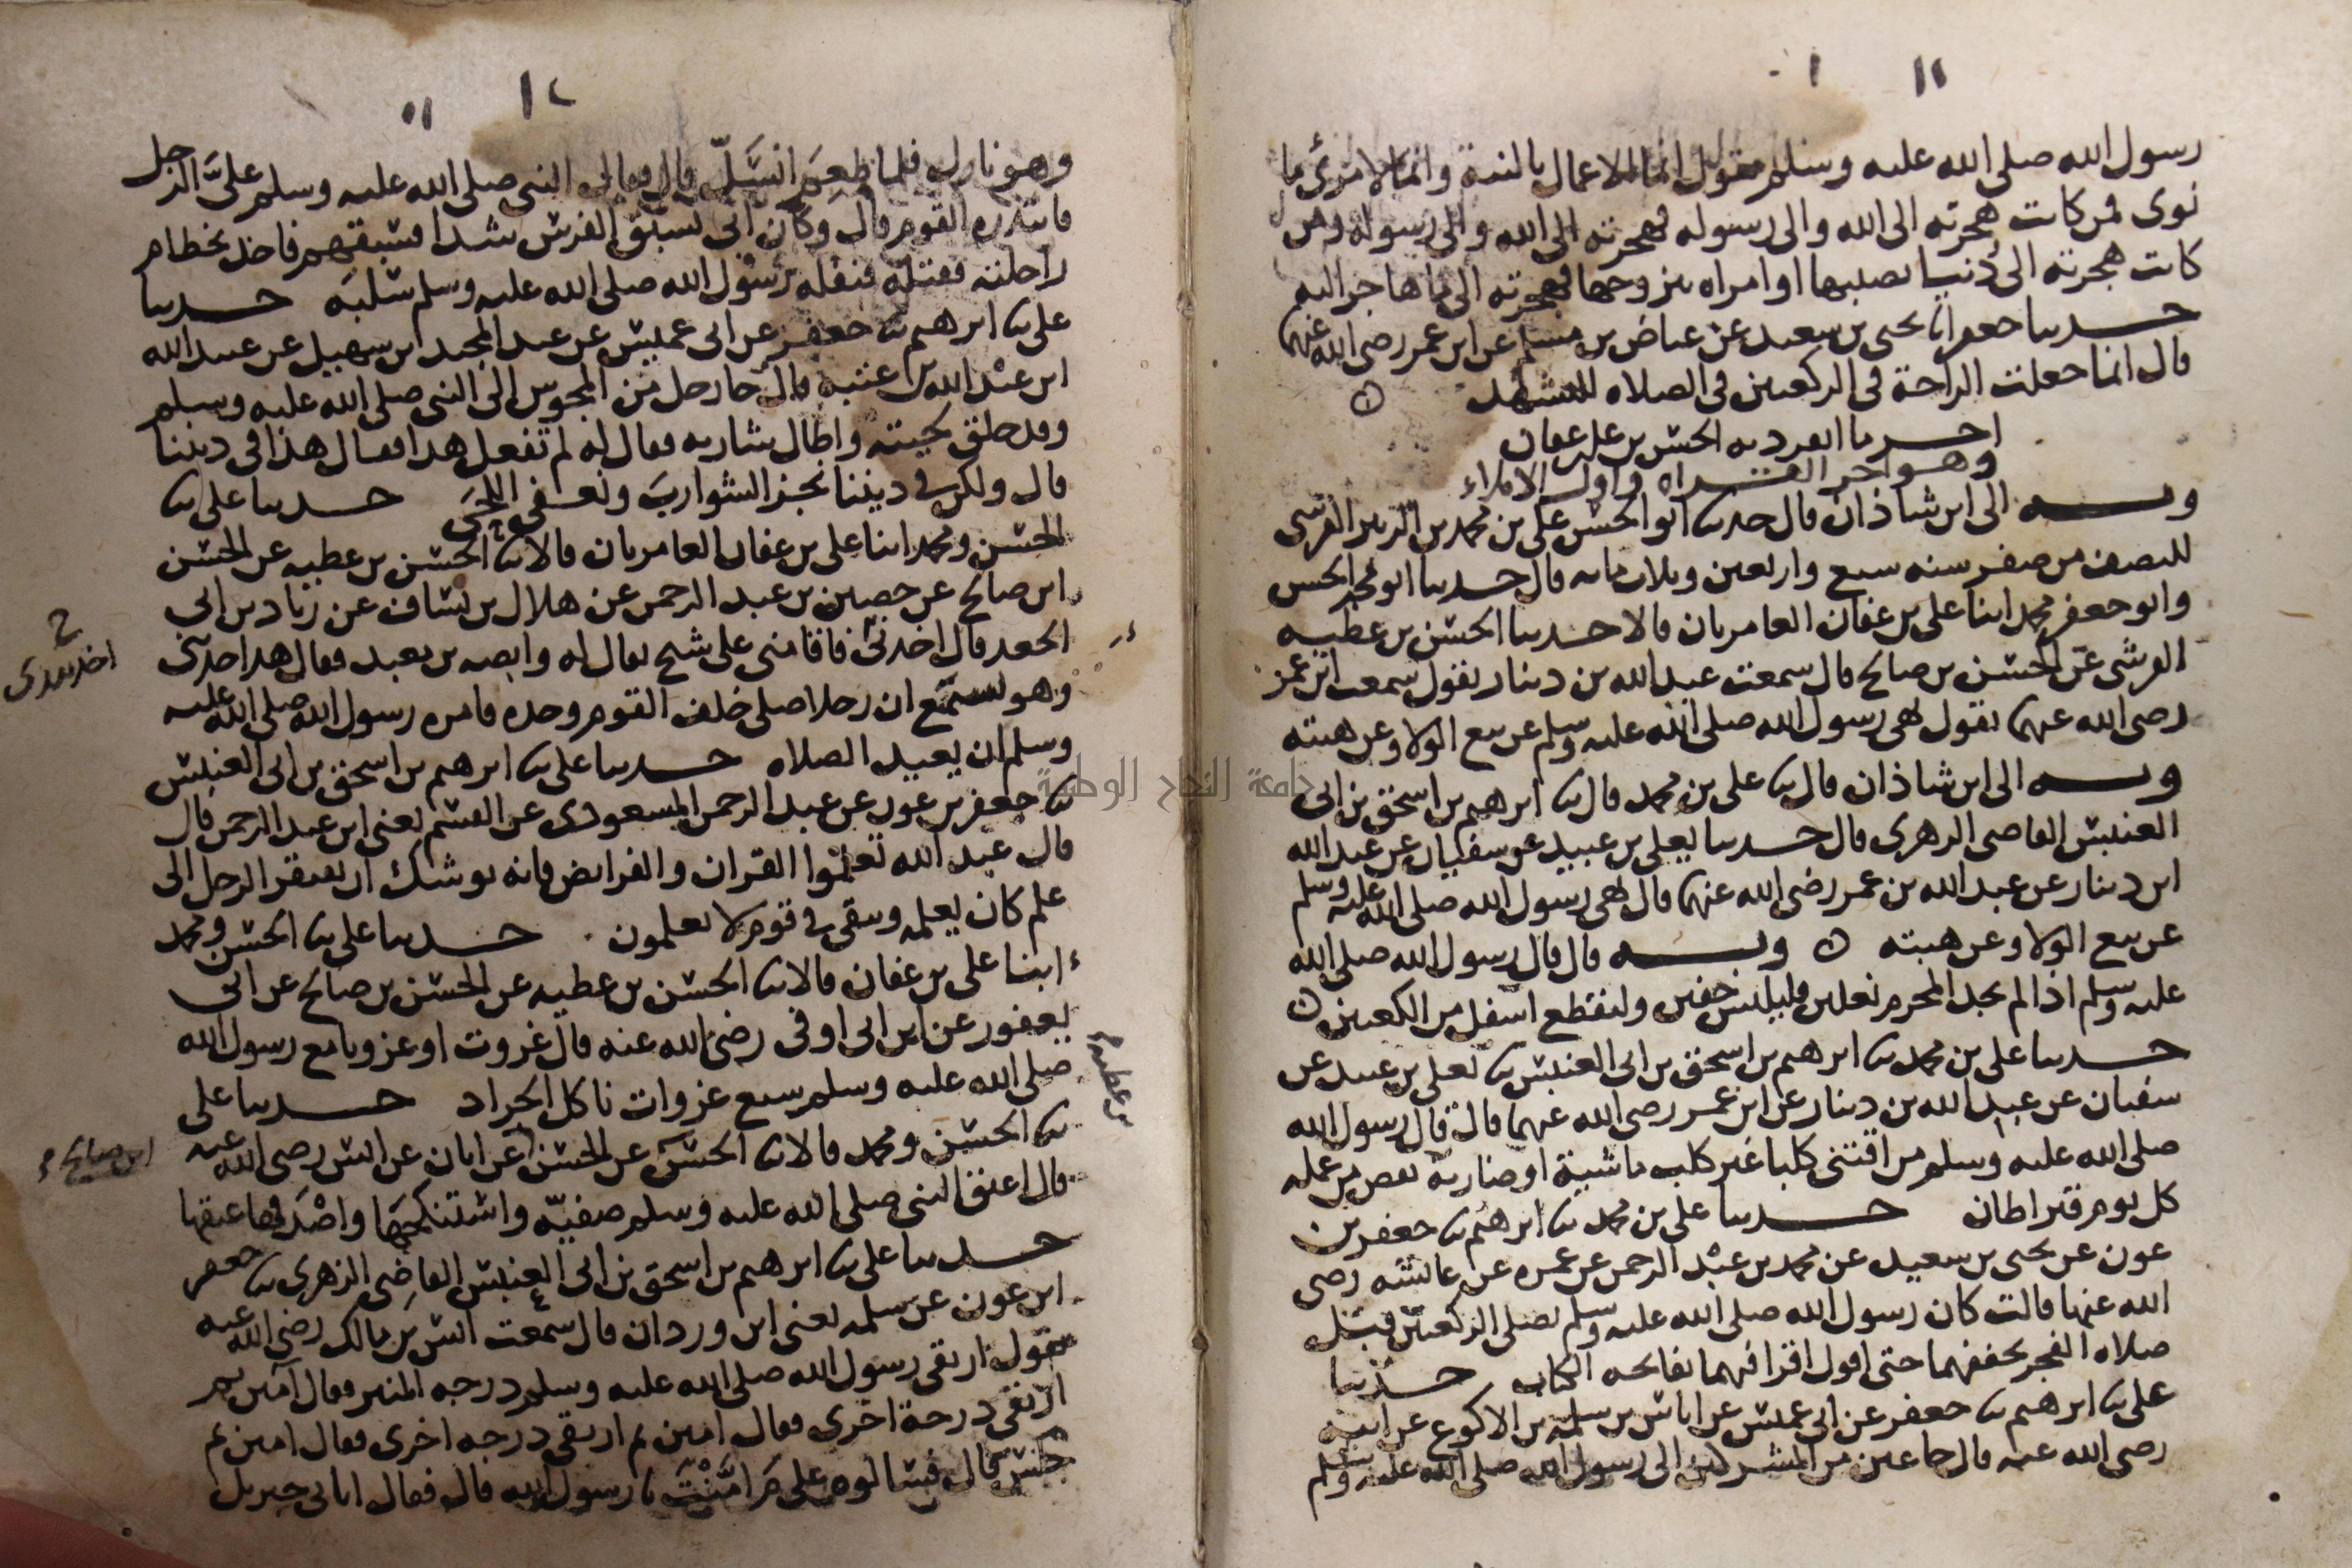 ١١ ١
رسول الله صلى الله عليه وسلم يقول انما الاعمال بالنية وانما لامرئ ما
نوى فمن كانت هجرته الى الله والى رسوله فهجرته الى الله والى رسوله ومن
كانت هجرته الى دنيا يصيبها او امراه يتزوجها فهجرته الى ما هاجر اليه
حدثنا جعفر انا يحيى بن سعيد عن عياض بن مسلم عن ابن عمر رضي الله عنهما
قال انما جعلت الراحة في الركعتين في الصلاه للتشهد
اخر ما انفرد به الحسن بن علي بن عفان
وهو اخر القراه واول الاملاء
وبه الى ابن شاذان قال حدثنا ابو الحسن علي بن محمد بن الزبير القرشي
للنصف من صفر سنه سبع واربعين وثلاث مايه قال حدثنا ابو محمد الحسن
وابو جعفر محمد ابنا علي بن عفان العامريان قالا حدثنا الحسن بن عطيه
القرشي عن الحسن بن صالح قال سمعت عبد الله بن دينار يقول سمعت ابن عمر
رضي الله عنهما يقول نهى رسول الله صلى الله عليه وسلم عن بيع الولا وعن هبته
وبه الى ابن شاذان قال ثنا علي بن محمد قال ثنا ابرهيم بن اسحق بن ابي
العنبس القاضي الزهري قال حدثنا يعلى بن عبيد عن سفيان عن عبد الله
ابن دينار عن عبد الله بن عمر رضي الله عنهما قال نهى رسول الله صلى الله عليه وسلم
عن بيع الولا وعن هبته وبه قال قال رسول الله صلى الله
عليه وسلم اذا لم يجد المحرم نعلين فليلبس خفين وليقطع اسفل من الكعبين
حدثنا علي بن محمد ثنا ابرهيم بن اسحق بن ابي العنبس ثنا يعلى بن عبيد عن
سفيان عن عبد الله بن دينار عن ابن عمر رضي الله عنهما قال قال رسول الله
صلى الله عليه وسلم من اقتنى كلبا غير كلب ماشية او ضارية نقص من عمله
كل يوم قيراطان حدثنا علي بن محمد ثنا ابرهيم ثنا جعفر بن
عون عن يحيى بن سعيد عن محمد بن عبد الرحمن عن عمره عن عائشه رضي
الله عنها قالت كان رسول الله صلى الله عليه وسلم يصلي الركعتين قبل
صلاه الفجر يخففهما حتى اقول اقرا فيهما بفاتحه الكتاب حدثنا
علي ثنا ابرهيم ثنا جعفر عن ابي عميس عن اياس بن سلمة بن الاكوع عن ابيه
رضي الله عنه قال جا عين من المشركين الى رسول الله صلى الله عليه وسلم
١١ ١٢
وهو نازل فلما طعم انسل قال فقال النبي صلى الله عليه وسلم علي الرجل
فابتدره القوم قال وكان ابي يسبق الفرس شدا فسبقهم فاخذ بخطام
راحلته فقتله فنفله رسول الله صلى الله عليه وسلم سلبه حدثنا
علي ثنا ابرهيم ثنا جعفر عن ابي عميس عن عبد المجيد ابن سهيل عن عبيد الله
ابن عبد الله بن عتبه قال جا رجل من المجوس الى النبي صلى الله عليه وسلم
وقد حلق لحيته واطال شاربه فقال له لم تفعل هذا فقال هذا في ديننا
قال ولكن في ديننا نجز الشوارب ونعفي اللحى حدثنا علي ثنا
الحسن ومحمد ابنا علي بن عفان العامريان قالا ثنا الحسن بن عطيه عن الحسن
ابن صالح عن حصين بن عبد الرحمن عن هلال بن يساف عن زياد بن ابي
الجعد قال اخذ بيدي فاقامني على شيخ يقال له وابصه بن معبد فقال هذا حدثني
وهو يسمع ان رجلا صلى خلف القوم وحده فامره رسول الله صلى الله عليه
وسلم ان يعيد الصلاه حدثنا علي ثنا ابرهيم بن اسحق بن ابي العنبس
ثنا جعفر بن عون عن عبد الرحمن المسعودي عن القسم يعني ابن عبد الرحمن قال
قال عبد الله تعلموا القران والفرائض فانه يوشك ان يفتقر الرجل الى
علم كان يعلمه ويبقى في قوم لا يعلمون حدثنا علي ثنا الحسن ومحمد
ابنا علي بن عفان قالا ثنا الحسن بن عطيه عن الحسن بن صالح عن ابي
يعفور عن ابن ابي اوفى رضي الله عنه قال غزوت او غزونا مع رسول الله
صلى الله عليه وسلم سبع غزوات ناكل الجراد حدثنا علي
ثنا الحسن ومحمد قالا ثنا الحسن عن الحسن عن ابان عن انس رضي الله عنه
قال اعتق النبي صلى الله عليه وسلم صفيه واستنكحها واصدقها عتقها
حدثنا علي ثنا ابرهيم بن اسحق بن ابي العنبس القاضي الزهري ثنا جعفر
ابن عون عن سلمه يعني ابن وردان قال سمعت انس بن مالك رضي الله عنه
يقول ارتقى رسول الله صلى الله عليه وسلم درجه المنبر فقال امين ثم
ارتقى درجة اخرى فقال امين ثم ارتقى درجه اخرى فقال امين ثم
جلس قال فسالوه على م امنت يا رسول الله قال فقال اتاني جبريل
بن عطيه
ابن صالح
جامعة النجاح الوطنية